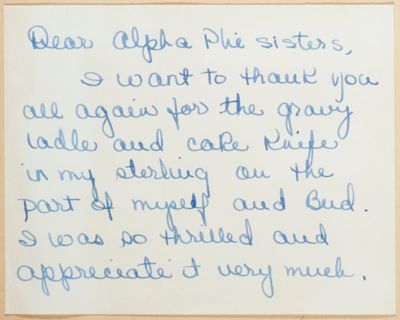 Dear Alpha Phi sisters,
I want to thank you
all again for the gravy
ladle and cake knife
in my sterling on the
part of myself and Bud.
I was so thrilled and
appreciate it very much.